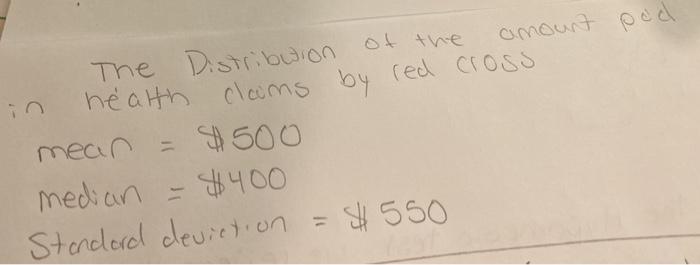 The Distribution of the amount paid
in health claims by red cross
mean = $500
median = $400
Standard deviction = $550